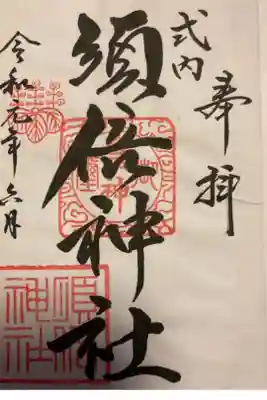 奉拝
式内
須倍神社
令和元年 六月